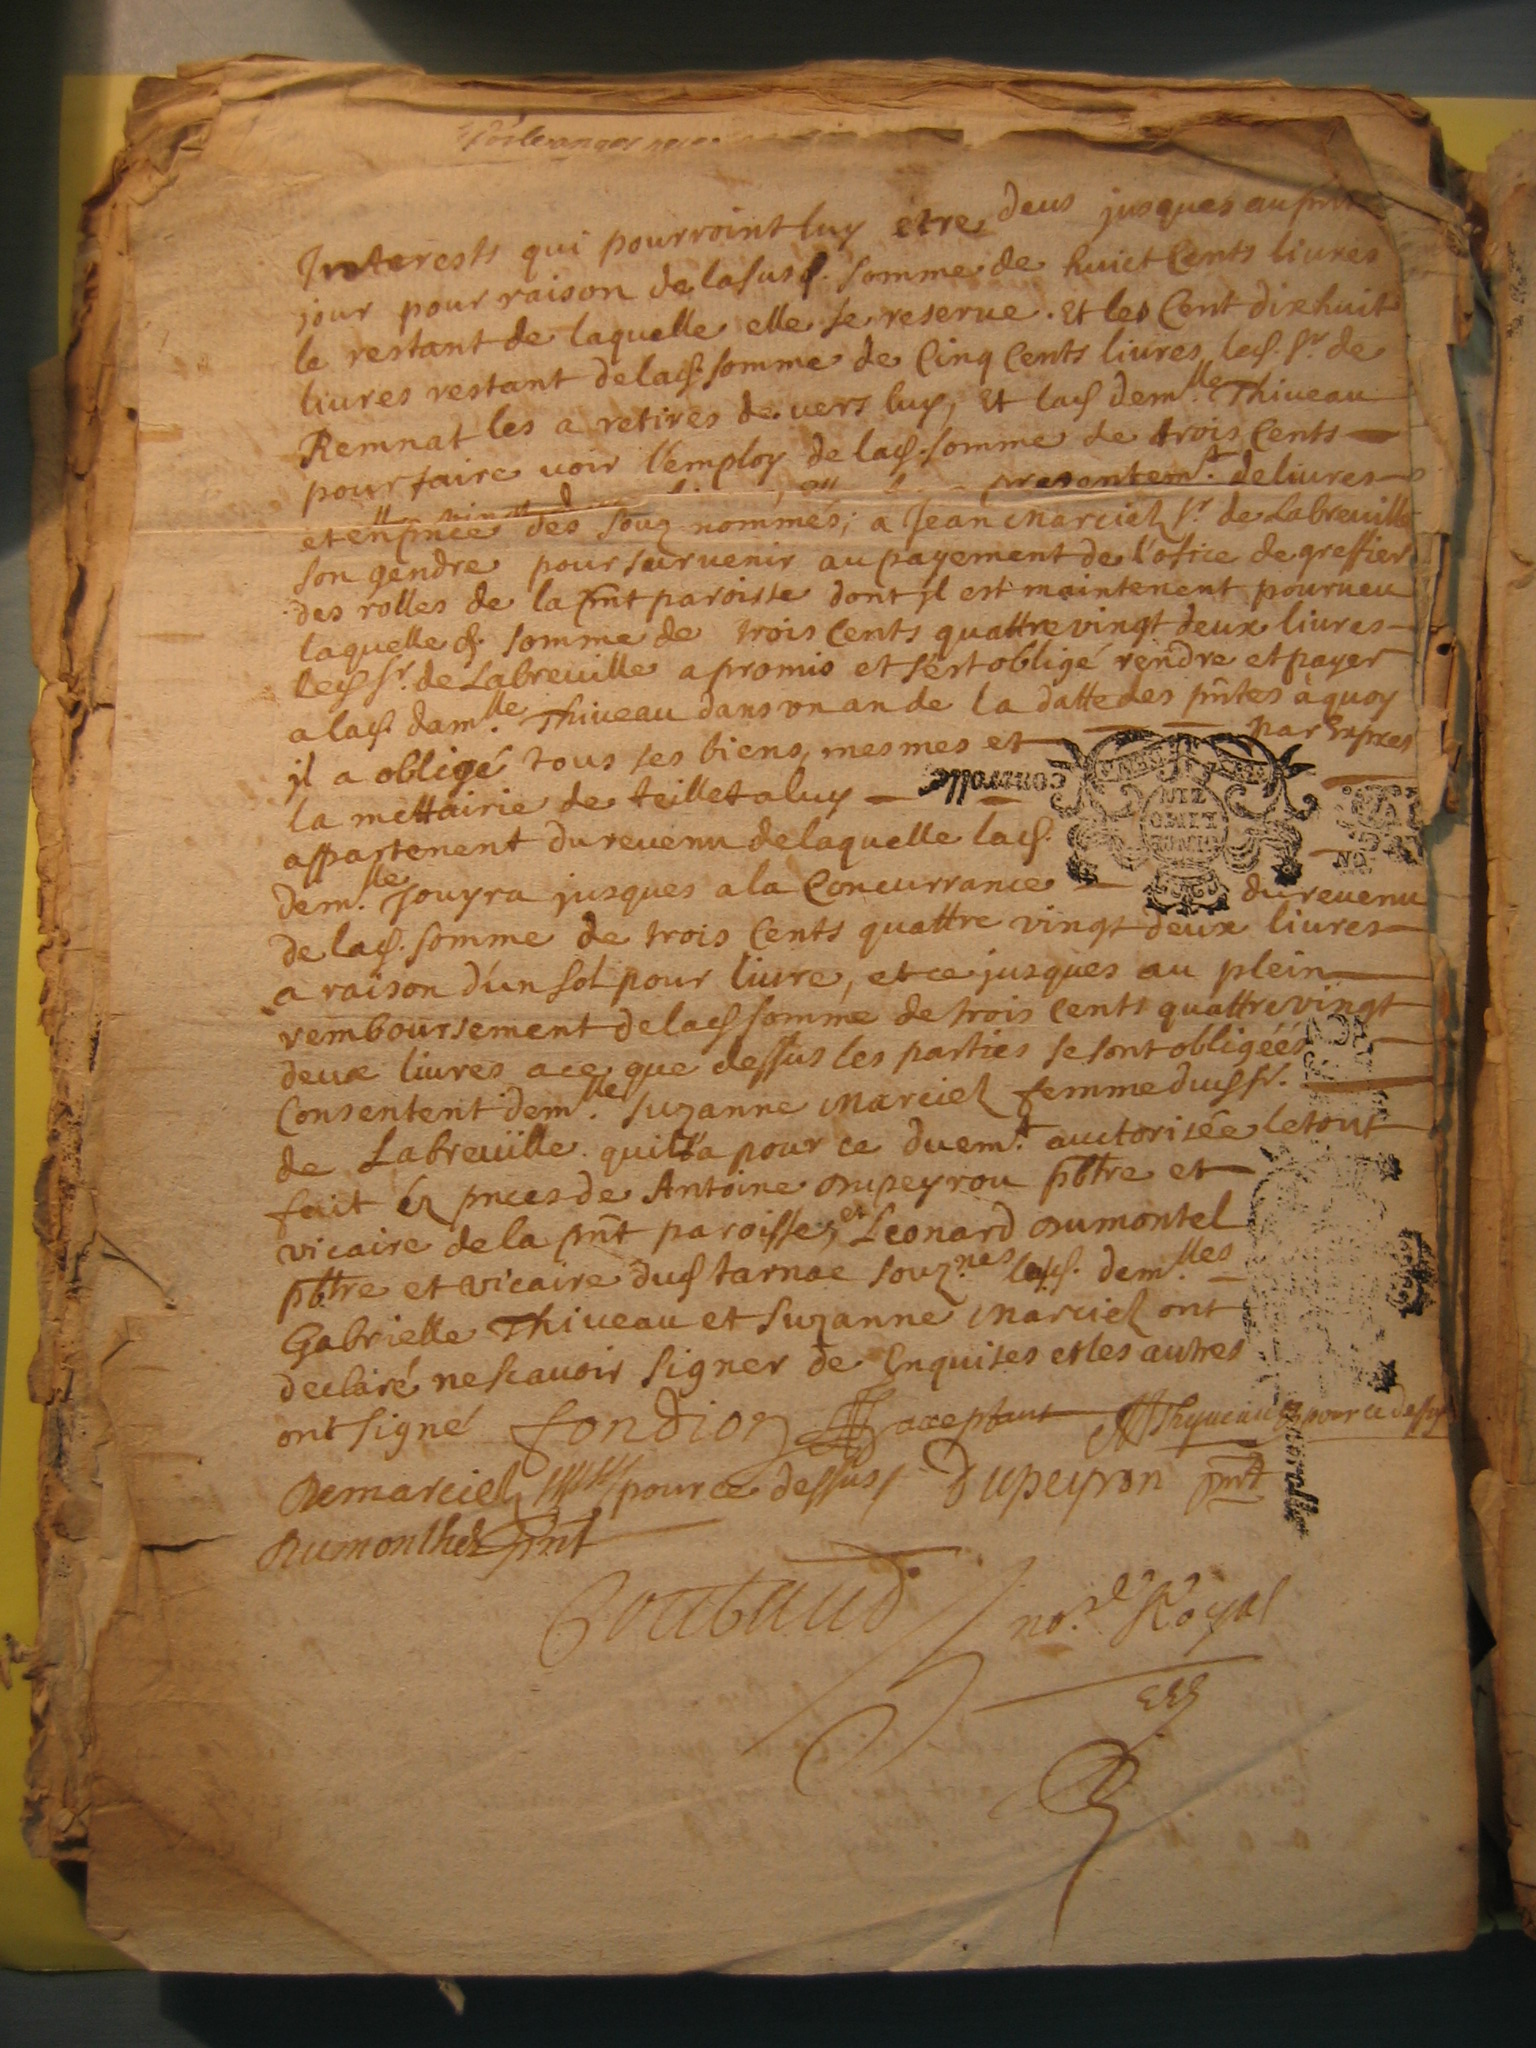 Interests qui pourroint luy étre deus jusques au pnt
jour pour raison de la susd. somme de huict Cents livres
le restant de laquelle elle se reserve. Et les Cent dixhuit
livres restant de lad. somme de Cinq Cents livres led. Sr. de
Remnat les a retires devers luy, Et lad demlle. Thiveau
pour faire voir l'employ de lad. somme de trois Cents
presentemt. delivres
et en pnce des souz nommés; a Jean Marciel Sr. de Labreuille
son gendre pour survenir au payement de l'ofice de greffier
des rolles de la pnt paroisse dont jl est maintenent pourveu
laquelle d. somme de trois Cents quattre vingt deux livres
led Sr. de Labreuille a promis et s'est obligé rendre et payer
a lad. damlle. Thiveau dans un an de la datte des pntes à quoy
jl a obligé tous ses biens, mesmes et par Expres
la mettairie de teillet a luy
controlle
appartenent du revenu de laquelle lad.
demlle. Jouyra jusques a la Concurrance du revenu
de lad. somme de trois Cents quattre vingt deux livres
a raison d'un sol pour livre, et ce jusques au plein
remboursement de lad somme de trois Cents quattre vingt
deux livres a ce que dessus les parties se sont obligéés
Consentent demlle. Suzanne Marciel femme dud Sr.
de Labreuille qui l'a pour ce duemt. auctorisée le tout
fait éz pnces de Antoine Dupeyrou pbtre et
vicaire de la pnt paroisse, et Leonard Dumontel
pbtre et vicaire dud tarnac souz.nes lesd. demlles
Gabrielle Thiveau et Suzanne Marciel ont
declaré ne scavoir signer de Enquises et les autres
ont signé fondion acceptant pour ce dessus
Demarciel pour ce dessus Dupeyron pnt
Dumonthel pnt
no.re Royal